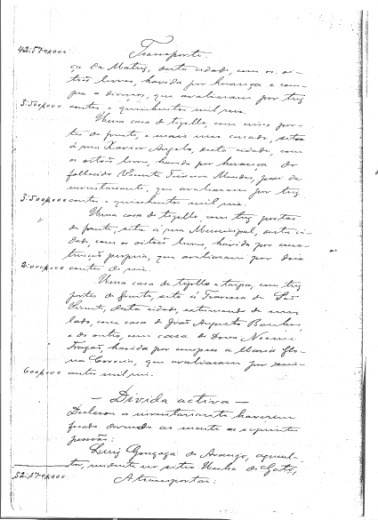 42:570$000
Transporte
ça da Matriz, desta cidade, com os oi-
tões livres, havida por herança e com-
pra a diversos, que avaliaram por tres
3:500$000 contos e quinhentos mil reis.
Uma casa de tijollo, com cinco por-
tas de frente, e mais um cercado, sita
á rua Xavier Angelo, desta cidade, com
os oitões livres, havida por herança do
fallecido Vicente Teixeira Mendes, pae da
inventariante, que avaliaram por tres
3:500$000 contos e quinhentos mil reis.
Uma casa de tijollo, com tres portas
de frente, sita á rua Municipal, desta ci-
dade, com os oitões livres, havida por cons-
trucção propria, que avaliaram por dois
2:000$000 contos de reis.
Uma casa de tijollo e taipa, com tres
portas de frente, sita á Travessa de São
Vicente, desta cidade, extremando de um
lado, com casa de João Augusto
e do outro, com casa de Dona
havida por compra a Maria
que avaliaram por seis-
600$000 centos mil reis.
— Divida activa —
Declarou a inventariante haverem
ficado devendo ao monte as seguintes
pessôas:
Luiz Gonzaga de Araujo, agricul-
tor, residente no sitio
52:170$000
A transportar: